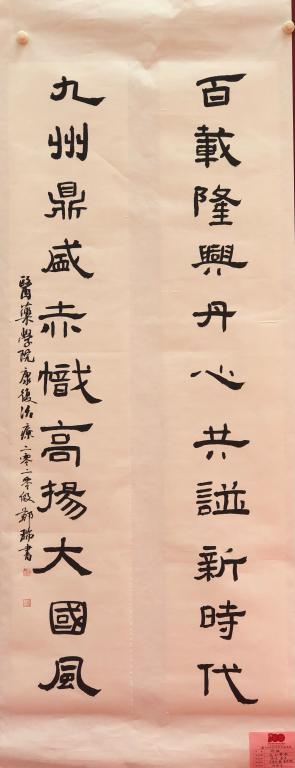 百載隆興丹心共譜新時代
九州鼎盛赤幟高揚大國風
醫藥學院康復治療二零二零級鄭瑞書